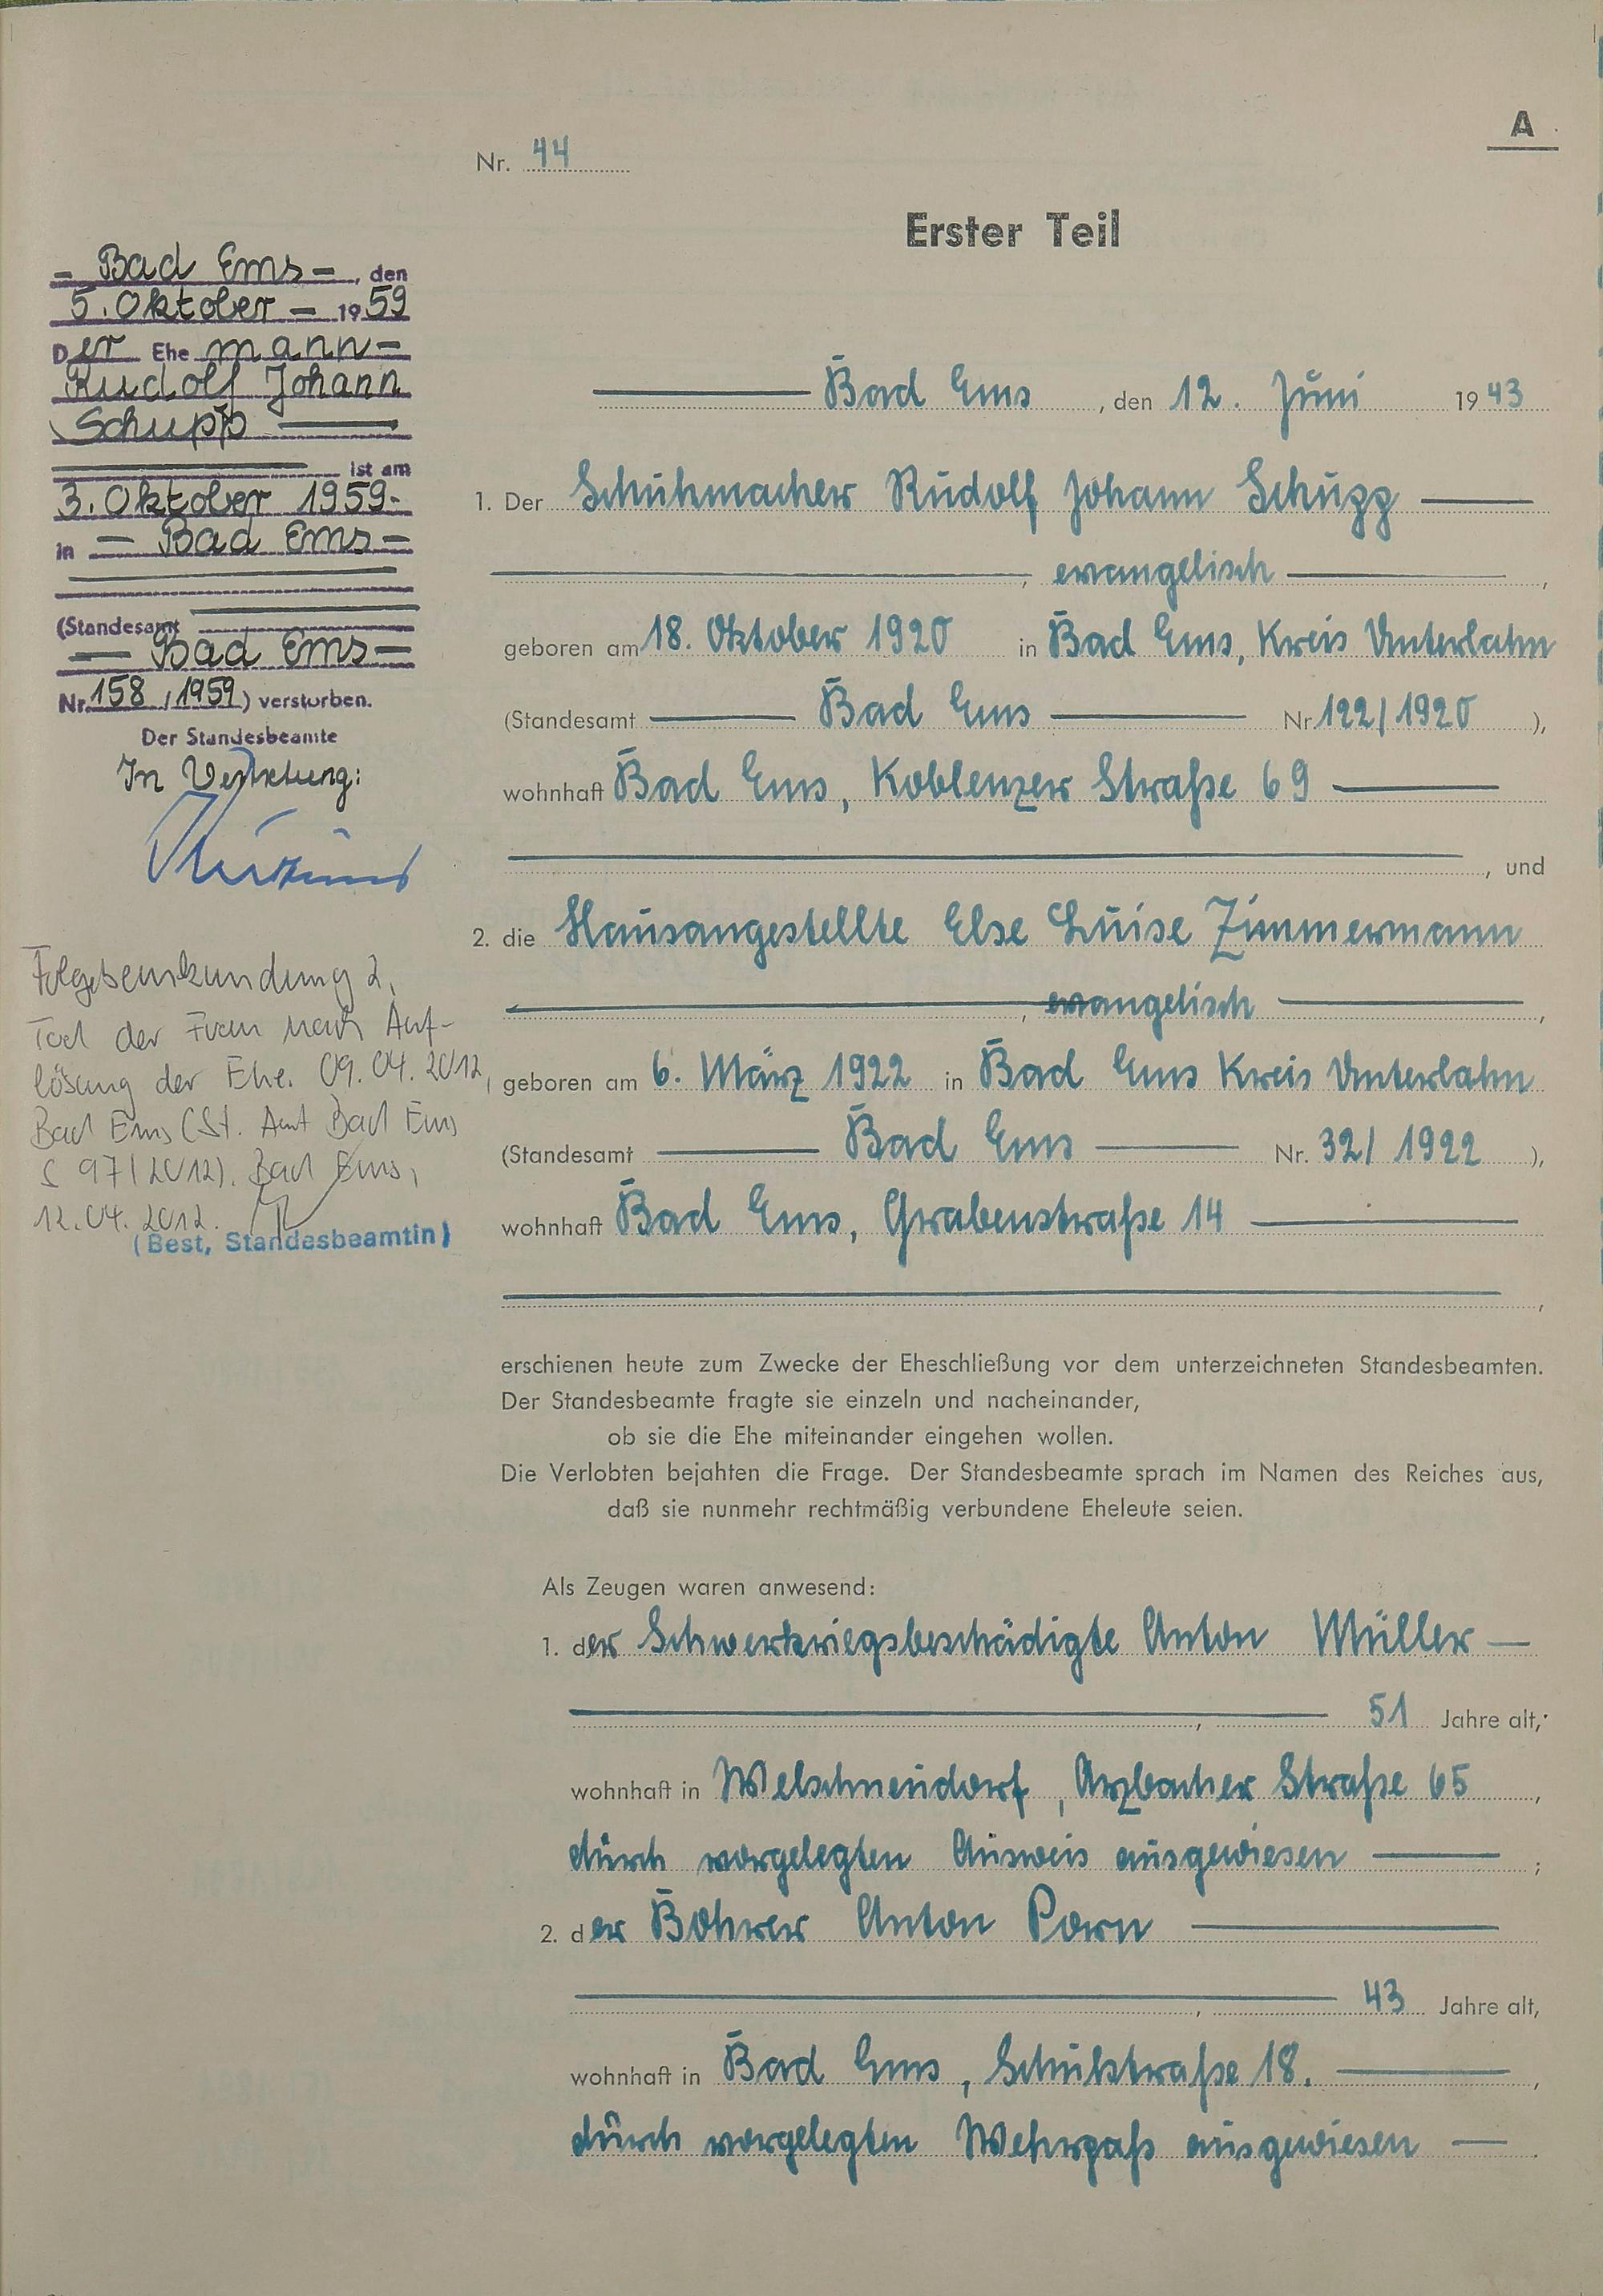 A
Nr. 44
Erster Teil
– Bad Ems – , den
5. Oktober – 1959
Der Ehe mann –
Rudolf Johann
Schupp
ist am
3. Oktober 1959 -
in – Bad Ems –
(Standesamt
– Bad Ems –
Nr. 158 / 1959) verstorben.
Der Standesbeamte
In Vertretung:
Folgebeurkundung 2.
Tod der Frau nach Auf-
lösung der Ehe. 09.04.2012,
Bad Ems (St. Amt Bad Ems
S 97/2012). Bad Ems,
12.04.2012.
(Best, Standesbeamtin)
Bad Ems , den 12. Juni 1943
1. Der Schuhmacher Rudolf Johann Schupp
, evangelisch ,
geboren am 18. Oktober 1920 in Bad Ems, Kreis Unterlahn
(Standesamt Bad Ems Nr. 122/1920 ),
wohnhaft Bad Ems, Koblenzer Straße 69
, und
2. die Hausangestellte Else Luise Zimmermann
, evangelisch ,
geboren am 6. März 1922 in Bad Ems Kreis Unterlahn
(Standesamt Bad Ems Nr. 32/ 1922 ),
wohnhaft Bad Ems, Grabenstraße 14
,
erschienen heute zum Zwecke der Eheschließung vor dem unterzeichneten Standesbeamten.
Der Standesbeamte fragte sie einzeln und nacheinander,
ob sie die Ehe miteinander eingehen wollen.
Die Verlobten bejahten die Frage. Der Standesbeamte sprach im Namen des Reiches aus,
daß sie nunmehr rechtmäßig verbundene Eheleute seien.
Als Zeugen waren anwesend:
1. der Schwerkriegsbeschädigte Anton Müller –
, 51 Jahre alt,
wohnhaft in Welschneudorf , Arzbacher Straße 65 ,
durch vorgelegten Ausweis ausgewiesen ;
2. der Bohrer Anton Porn
, 43 Jahre alt,
wohnhaft in Bad Ems , Schulstraße 18. ,
durch vorgelegten Wehrpaß ausgewiesen – .